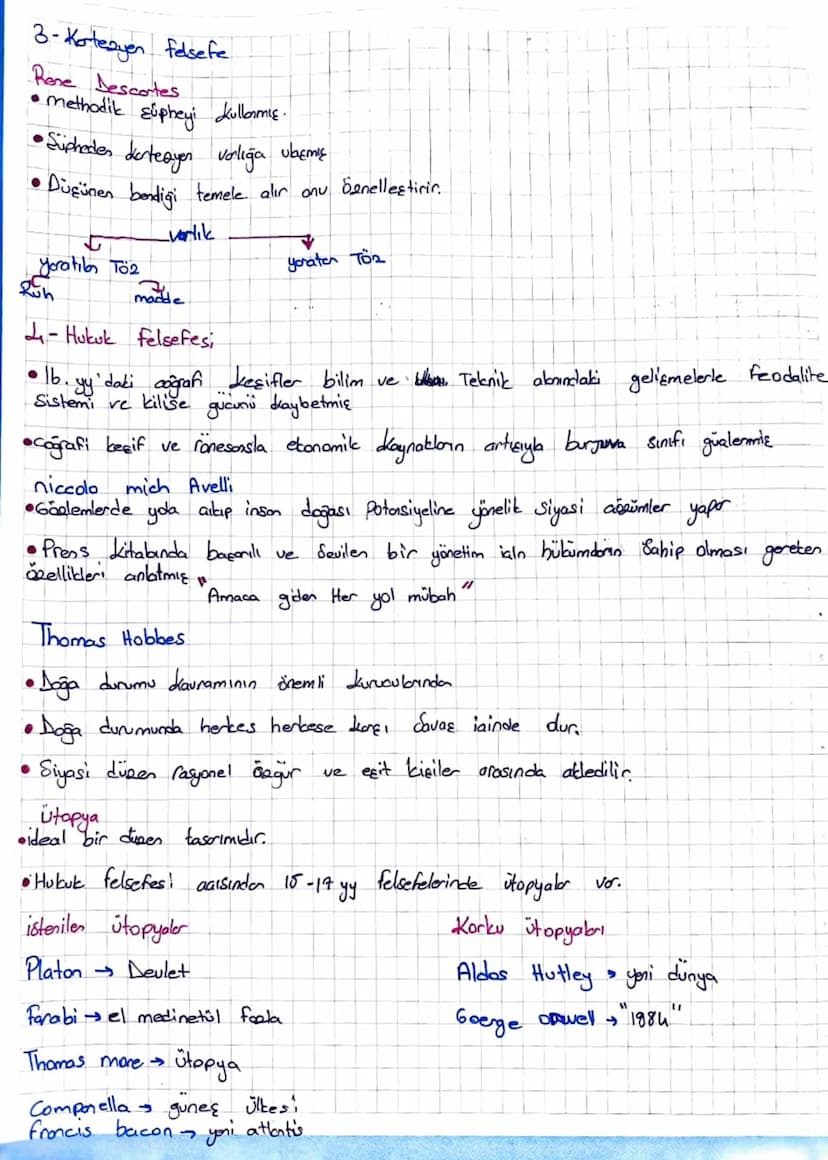 3- Kartezyen felsefe
Rene Descartes
• methodik şüpheyi kullanmış.
• Şüpheden kartezyen varlığa ulaşmış
• Düşünen bendiği temele alır onu özenelleştirir.
varlık
yaratılan Töz yaratan Töz
Ruh madde
4- Hukuk felsefesi
• 16. yy'daki coğrafi keşifler bilim ve Teknik alanındaki gelişmelerle feodalite
Sistemi ve kilise gücünü kaybetmiş
• coğrafi keşif ve rönesansla ekonomik kaynakların artışıyla burjuva sınıfı güçlenmiş
niccolo mich Avelli
• Gözlemlerde yola çıkıp insan doğası Potansiyeline yönelik siyasi çözümler yapar
• Prens kitabında başarılı ve Sevilen bir yönetim için hükümdarın Sahip olması gereken
özellikleri anlatmış
"Amaca giden Her yol mübah"
Thomas Hobbes
• Doğa durumu kavramının önemli kurucularında
• Doğa durumunda herkes herkese karşı Savaş içinde dur.
• Siyasi düzen rasyonel özgür ve eşit kişiler arasında akledilir.
Ütopya
• ideal bir düzen tasarımıdır.
• Hukuk felsefesi açısından 15-17 yy felsefelerinde ütopyalar var.
istenilen ütopyalar Korku ütopyaları
Platon → Devlet Aldos Hutley → yeni dünya
Farabi → el medinetül fazla Goerge orwell → "1984"
Thomas more → Ütopya
Companella → güneş ülkesi
francis bacon → yeni atlantis